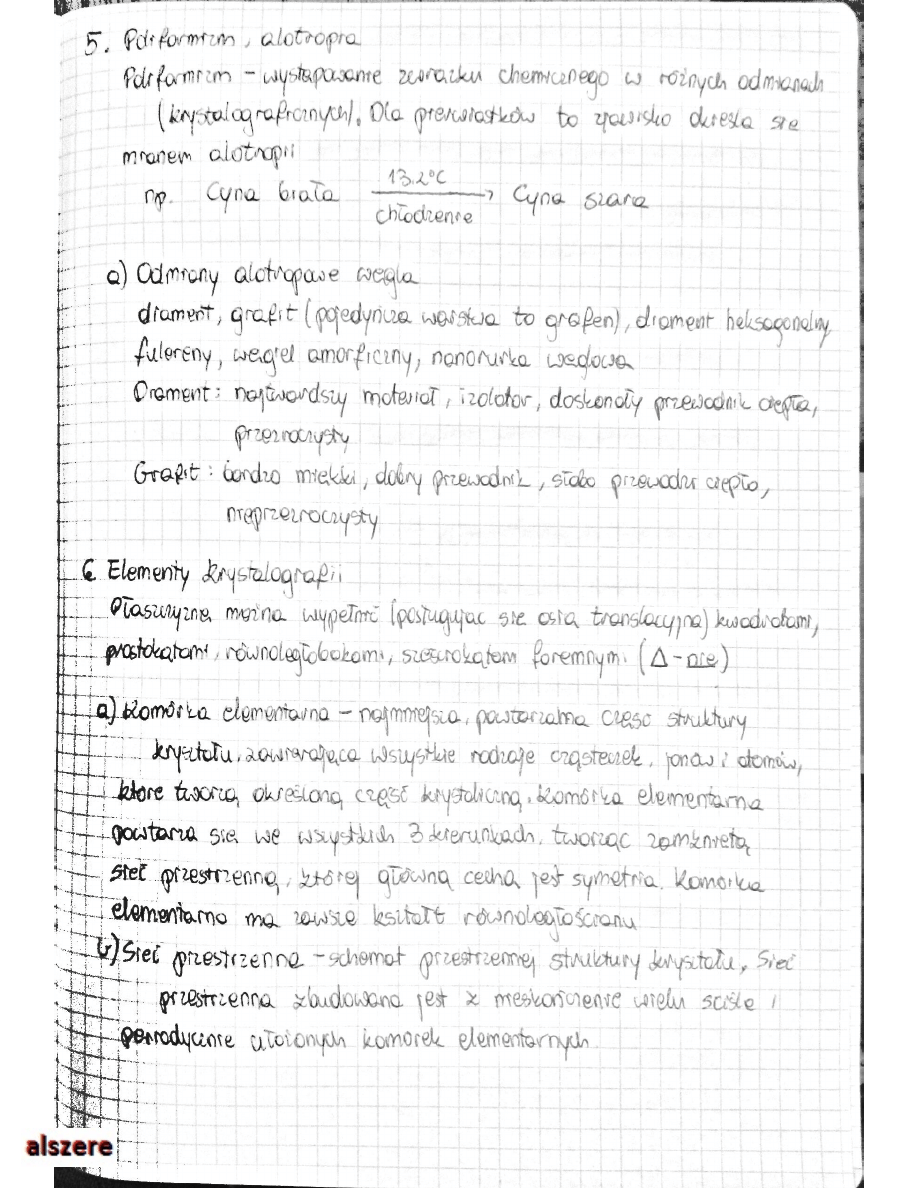 5. Poliformizm, alotropia
Poliformizm - występowanie związku chemicznego w różnych odmianach
(krystalograficznych). Dla pierwiastków to zjawisko określa się
mianem alotropii
np. Cyna biała 13.2°C chłodzenie → Cyna szara
a) Odmiany alotropowe węgla
diament, grafit (pojedyńcza warstwa to grafen), diament heksagonalny
fulereny, węgiel amorficzny, nanorurka węglowa
Diament: najtwardszy materiał, izolator, doskonały przewodnik ciepła,
przezroczysty
Grafit: bardzo miękki, dobry przewodnik, słabo przewodzi ciepło,
nieprzezroczysty
6 Elementy krystalografii
Płaszczyznę można wypełnić (posługując się osią translacyjną) kwadratami,
prostokątami, równoległobokami, sześciokątem foremnym. (Δ-nie)
a) Komórka elementarna - najmniejsza, powtarzalna część struktury
kryształu, zawierająca wszystkie rodzaje cząsteczek, jonów i atomów,
które tworzą określoną część krystaliczną. Komórka elementarna
powtarza się we wszystkich 3 kierunkach, tworząc zamkniętą
sieć przestrzenną, której główną cechą jest symetria. Komórka
elementarna ma zawsze kształt równoległościanu
b) Sieć przestrzenna - schemat przestrzennej struktury kryształu. Sieć
przestrzenna zbudowana jest z nieskończenie wielu ściśle i
periodycznie ułożonych komórek elementarnych
alszere